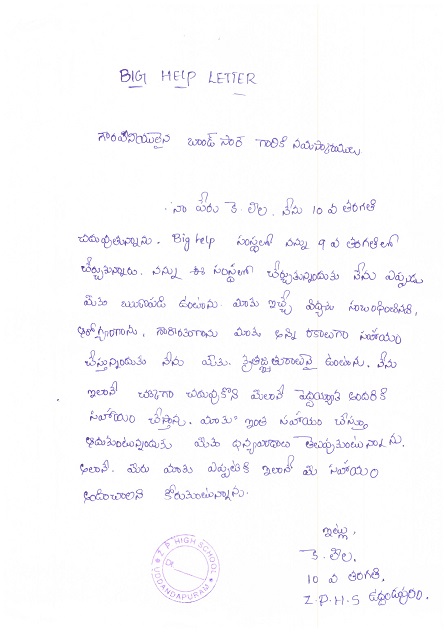 BIG HELP LETTER
గౌరవనీయులైన చాంద్ సార్ గారికి నమస్కారములు
నా పేరు కె. లీల. నేను 10 వ తరగతి
చదువుతున్నాను. Big help సంస్థలో నన్ను 9 వ తరగతిలో
చేర్చుకున్నారు. నన్ను ఈ సంస్థలో చేర్చుకున్నందుకు నేను ఎప్పుడు
మీకు ఋణపడి ఉంటాను. మాకు ఇచ్చే విద్యకు సంబంధించినవి,
ఆరోగ్యంగాను, మాకు అన్ని రకాలుగా సహాయం
చేస్తున్నందుకు నేను మీకు కృతజ్ఞతురాలునై ఉంటాను. నేను
ఇలానే చక్కగా చదువుకొని మీలానే పెద్దయ్యాక ఇందరికి
సహాయం చేస్తాను. మాకు ఇంత సహాయం చేస్తూ
ఆదుకుంటున్నందుకు మీకు ధన్యవాదాలు తెలుపుకుంటున్నాను.
అలానే. మీరు మాకు ఎప్పటికి ఇలానే మీ సహాయం
అందించాలని కోరుకుంటున్నాను.
ఇట్లు,
కె. లీల,
10 వ తరగతి,
Z.P.H.S ఉద్దండపురం.
Z.P HIGH SCHOOL
UDDANDAPURAM
Dt